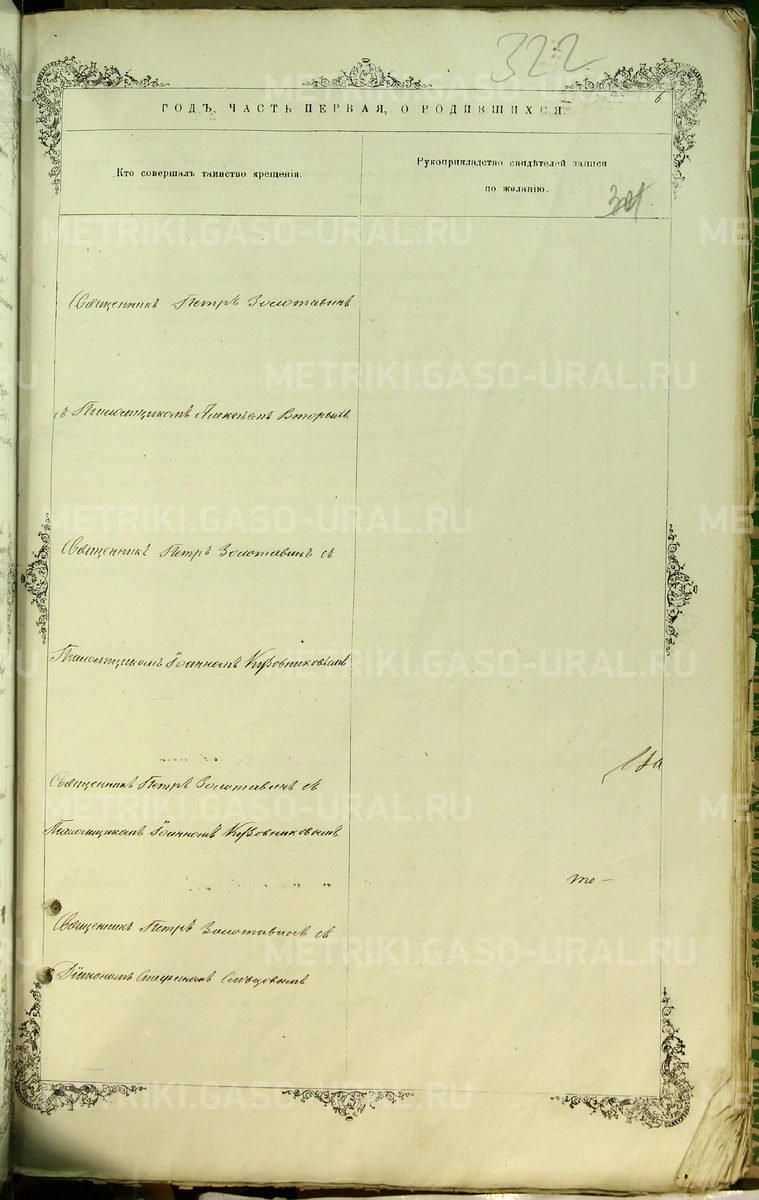 322
6
ГОДЪ, ЧАСТЬ ПЕРВАЯ, О РОДИВШИХСЯ
Кто совершалъ таинство крещенія.
Рукоприкладство свидѣтелей записи
по желанію.
METRIKI.GASO-URAL.RU
Священникъ Петръ Золотавинъ
съ Псаломщикомъ Алексѣемъ Вторыхъ
Священникъ Петръ Золотавинъ съ
Псаломщикомъ Іоанномъ Кузовниковымъ
Священникъ Петръ Золотавинъ съ
Псаломщикомъ Іоанномъ Кузовниковымъ
те-
Священникъ Петръ Золотавинъ съ
Діакономъ Стефаномъ